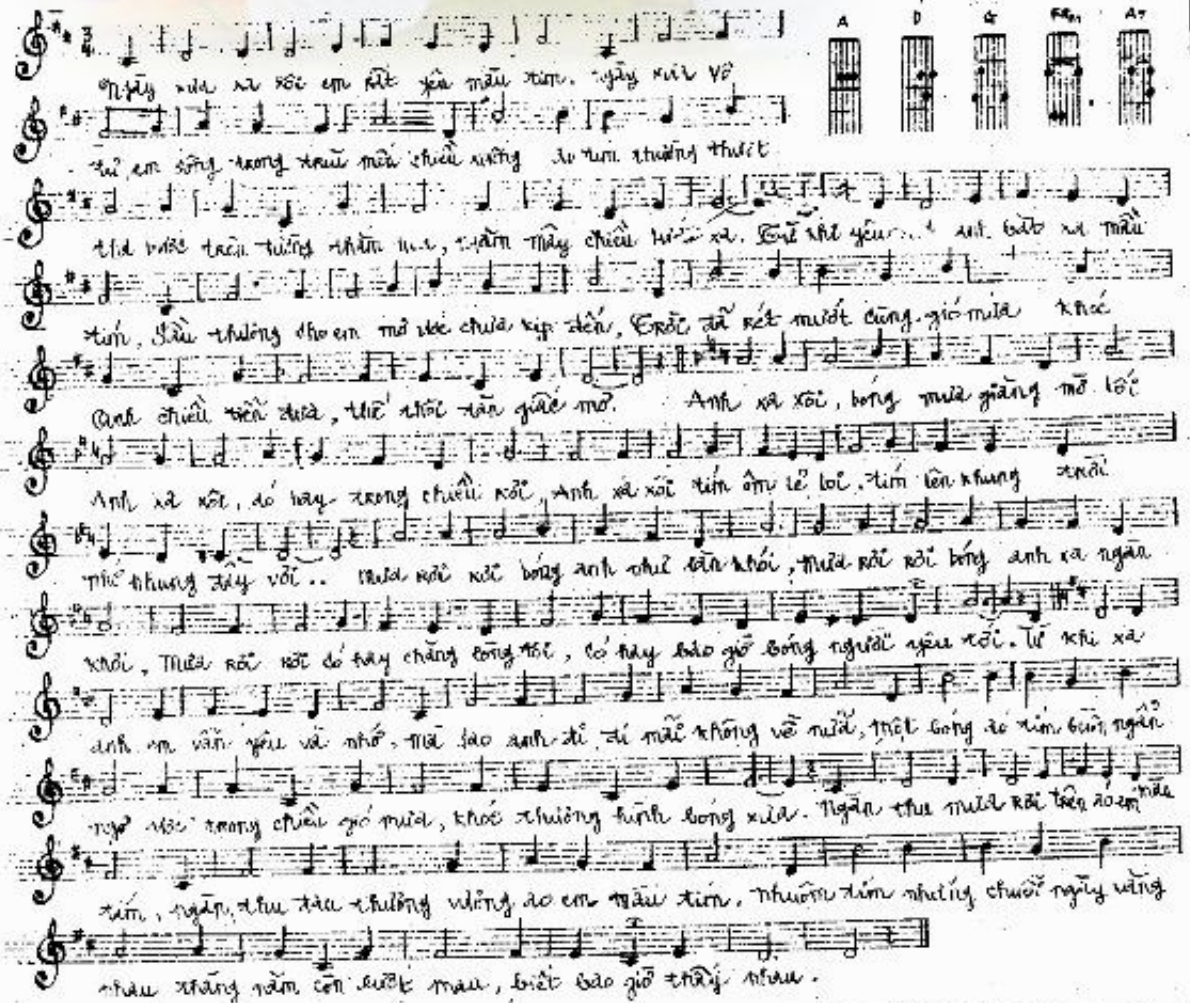 A D G A7
Ngày xưa xa xôi em rất yêu màu tím. ngày xưa vô
tư em sống trong trìu mến chiều xuống áo tím thường thướt
tha bước trên tường thắm hoa, ngắm mây chiều xa. Từ khi yêu anh anh bắt xa màu
tím, Sầu thương cho em mơ ước chưa kịp đến, Trời đã rét mướt cùng gió mưa khóc
anh chiều tiễn đưa, thế thôi tàn giấc mơ. Anh xa xôi, bóng mưa giăng mờ lối
Anh xa xôi, áo bay trong chiều rồi, Anh xa xôi tím ôm lẻ loi, tím lên khung trời
nhớ nhung đầy vơi.. mưa rơi rơi bóng anh như làn khói, Mưa rơi rơi bóng anh xa ngàn
khơi, Mưa rơi rơi có hay chăng lòng tôi, có hay bao giờ bóng người yêu tới. Từ khi xa
anh em vẫn yêu và nhớ, mà sao anh đi đi mãi không về nữa, một bóng áo tím buồn ngẩn
ngơ ước trong chiều gió mưa, khóc thương hình bóng xưa. Ngàn thu mưa rơi trên áo em màu
tím, ngàn thu đau thương vương áo em màu tím. nhuộm tím những chuỗi ngày vắng
nhau tháng năm còn lướt mau, biết bao giờ thấy nhau.